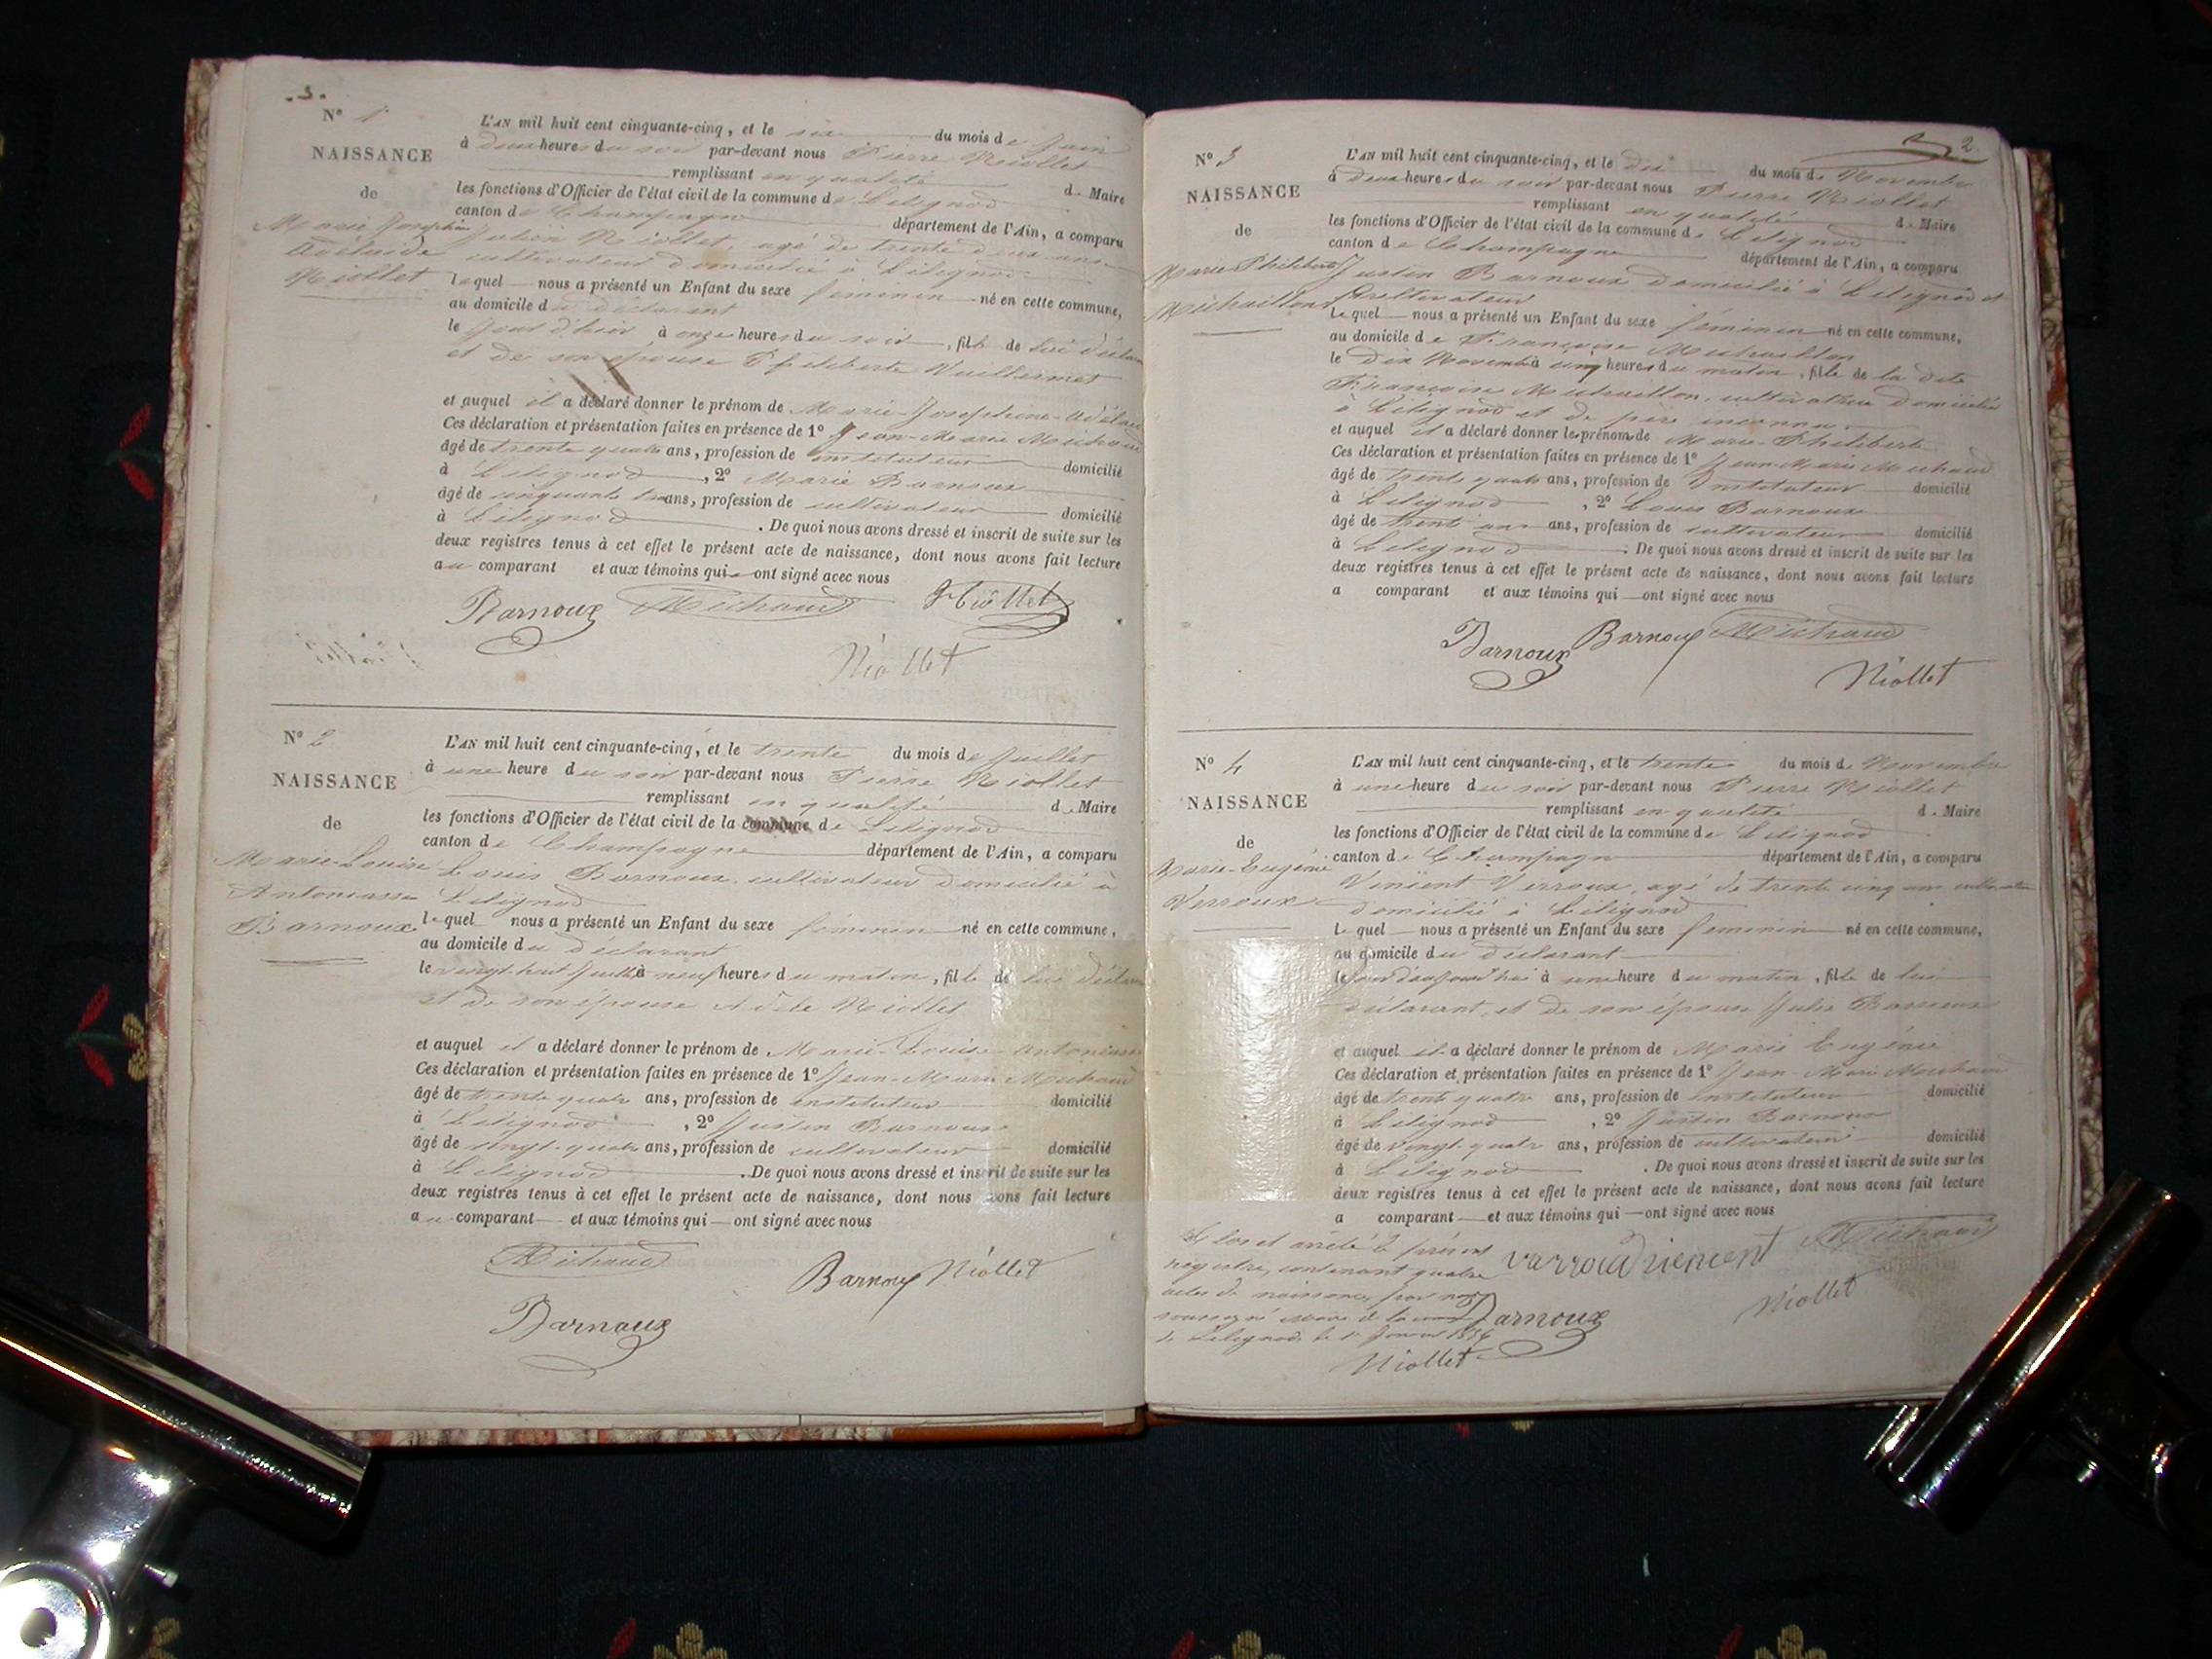 N° 1
NAISSANCE
de
Marie Josephine
Adélaïde
Niollet
L'AN mil huit cent cinquante-cinq, et le six du mois de Juin
à deux heures du soir par-devant nous Pierre Niollet
remplissant en qualité de Maire
les fonctions d'Officier de l'état civil de la commune de Lilignod
canton de Champagne département de l'Ain, a comparu
Julien Niollet, agé de trente deux ans
cultivateur domicilié à Lilignod
lequel nous a présenté un Enfant du sexe féminin né en cette commune,
au domicile du déclarant
le jour d'hier à onze heures du soir, fille de lui déclarant
et de son épouse Philiberte Vuillermet
et auquel il a déclaré donner le prénom de Marie-Josephine-Adélaïde
Ces déclaration et présentation faites en présence de 1° Jean-Marie Michaud
âgé de trente quatre ans, profession de instituteur domicilié
à Lilignod, 2° Marie Barnoux
âgé de cinquante ans, profession de cultivateur domicilié
à Lilignod. De quoi nous avons dressé et inscrit de suite sur les
deux registres tenus à cet effet le présent acte de naissance, dont nous avons fait lecture
au comparant et aux témoins qui ont signé avec nous
Barnoux Michaud Niollet
Niollet
N° 2
NAISSANCE
de
Marie-Louise
Antoniasse
Barnoux
L'AN mil huit cent cinquante-cinq, et le trente du mois de Juillet
à une heure du soir par-devant nous Pierre Niollet
remplissant en qualité de Maire
les fonctions d'Officier de l'état civil de la commune de Lilignod
canton de Champagne département de l'Ain, a comparu
Louis Barnoux, cultivateur domicilié à
Lilignod
lequel nous a présenté un Enfant du sexe féminin né en cette commune,
au domicile du déclarant
le vingt-huit Juillet à neuf heures du matin, fille de lui déclarant
et de son épouse Adèle Niollet
et auquel il a déclaré donner le prénom de Marie-Louise-Antoniasse
Ces déclaration et présentation faites en présence de 1° Jean-Marie Michaud
âgé de trente quatre ans, profession de instituteur domicilié
à Lilignod, 2° Justin Barnoux
âgé de vingt-quatre ans, profession de cultivateur domicilié
à Lilignod. De quoi nous avons dressé et inscrit de suite sur les
deux registres tenus à cet effet le présent acte de naissance, dont nous avons fait lecture
au comparant et aux témoins qui ont signé avec nous
Michaud
Barnoux Niollet
Barnoux
2
N° 3
NAISSANCE
de
Marie Philiberte
Michaillon
L'AN mil huit cent cinquante-cinq, et le dix du mois de Novembre
à deux heures du soir par-devant nous Pierre Niollet
remplissant en qualité de Maire
les fonctions d'Officier de l'état civil de la commune de Lilignod
canton de Champagne département de l'Ain, a comparu
Justin Barnoux domicilié à Lilignod et
cultivateur
lequel nous a présenté un Enfant du sexe féminin né en cette commune,
au domicile de Françoise Michaillon
le dix Novembre à cinq heures du matin, fille de la dite
Françoise Michaillon, cultivatrice domiciliée
à Lilignod et de père inconnu
et auquel il a déclaré donner le prénom de Marie-Philiberte
Ces déclaration et présentation faites en présence de 1° Jean-Marie Michaud
âgé de trente quatre ans, profession de Instituteur domicilié
à Lilignod, 2° Louis Barnoux
âgé de trente ans, profession de cultivateur domicilié
à Lilignod. De quoi nous avons dressé et inscrit de suite sur les
deux registres tenus à cet effet le présent acte de naissance, dont nous avons fait lecture
a comparant et aux témoins qui ont signé avec nous
Barnoux Barnoux Michaud
Niollet
N° 4
NAISSANCE
de
Marie-Eugénie
Verroux
L'AN mil huit cent cinquante-cinq, et le trente du mois de Novembre
à une heure du soir par-devant nous Pierre Niollet
remplissant en qualité de Maire
les fonctions d'Officier de l'état civil de la commune de Lilignod
canton de Champagne département de l'Ain, a comparu
Vincent Verroux, agé de trente cinq ans cultivateur
domicilié à Lilignod
lequel nous a présenté un Enfant du sexe féminin né en cette commune,
au domicile du déclarant
le jour d'aujourd'hui à une heure du matin, fille de lui
déclarant, et de son épouse Julie Barnoux
et auquel il a déclaré donner le prénom de Marie Eugénie
Ces déclaration et présentation faites en présence de 1° Jean-Marie Michaud
âgé de trente quatre ans, profession de instituteur domicilié
à Lilignod, 2° Justin Barnoux
âgé de vingt-quatre ans, profession de cultivateur domicilié
à Lilignod. De quoi nous avons dressé et inscrit de suite sur les
deux registres tenus à cet effet le présent acte de naissance, dont nous avons fait lecture
a comparant et aux témoins qui ont signé avec nous
Clos et arrêté le présent
registre, contenant quatre
actes de naissance, par nous
soussigné maire de la
de Lilignod, le 1er Janvier 1856
Michaud
Niollet
Barnoux
Niollet